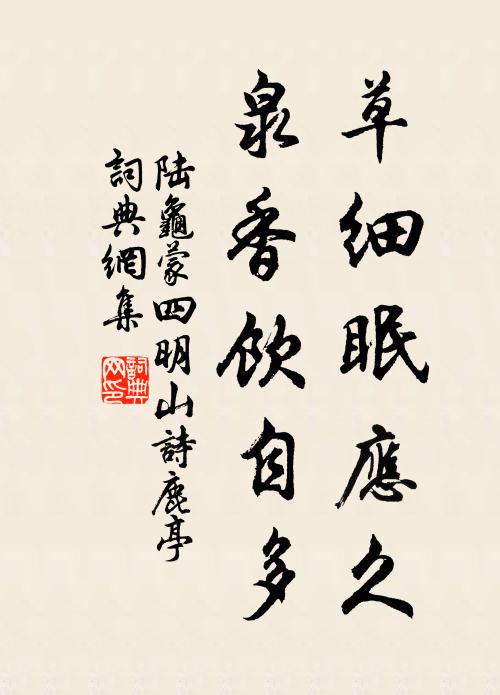 草細眠應久
泉香飲自多
陸龜蒙四明山詩鹿亭
詞典網集
詞典網印